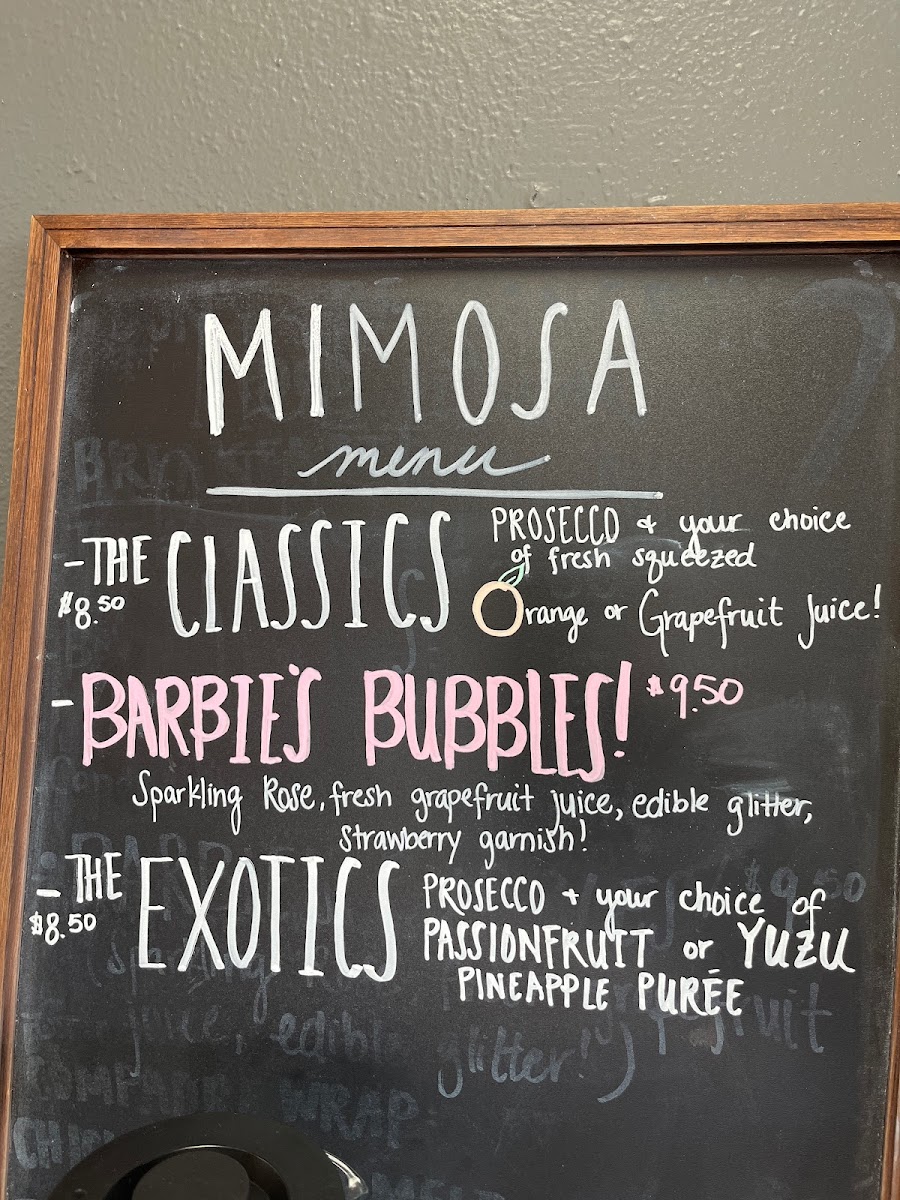 MIMOSA
menu
- THE CLASSICS
$8.50
PROSECCO + your choice
of fresh squeezed
Orange or Grapefruit juice!
- BARBIE'S BUBBLES! $9.50
Sparkling Rose, fresh grapefruit juice, edible glitter,
strawberry garnish!
- THE EXOTICS
$8.50
PROSECCO + your choice of
PASSIONFRUIT or YUZU
PINEAPPLE PURÉE
$9.50
juice, edible glitter!)
WRAP